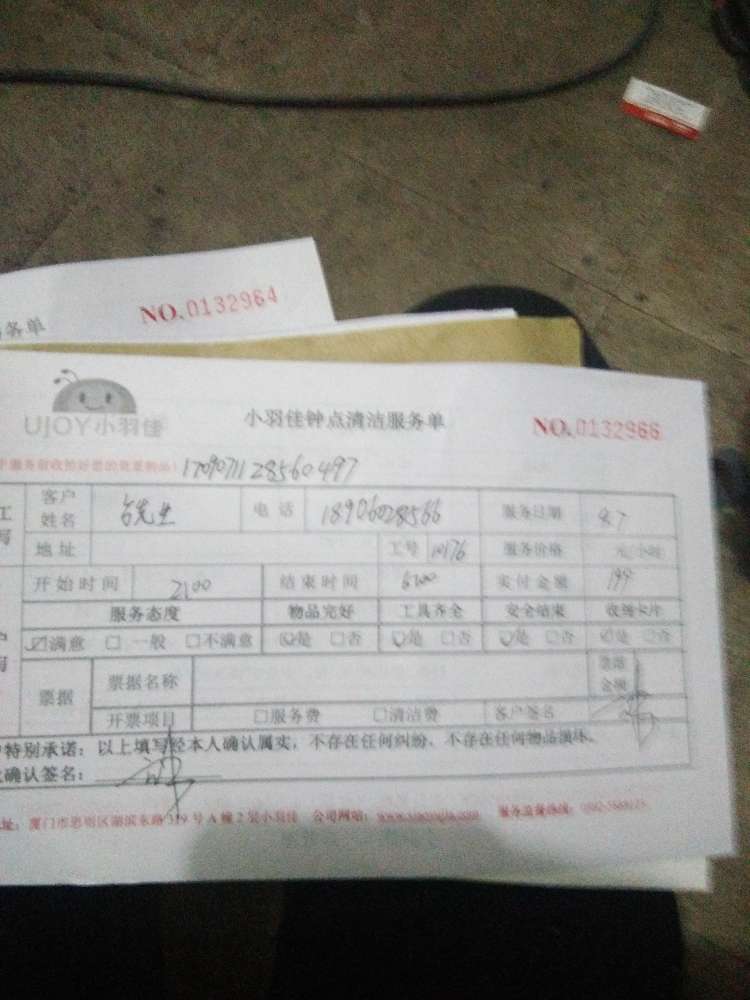 NO.0132964
务单
UJOY小羽佳
小羽佳钟点清洁服务单
NO.0132966
17090711 28560497
客户姓名 先生 电话 18906028566 服务日期
地址 工号 10176 服务价格 元/小时
开始时间 2100 结束时间 实付金额 199
服务态度 物品完好 工具齐全 安全结束 收到卡片
☑满意 □一般 □不满意 ☑是 □否 ☑是 □否 ☑是 □否 ☑是 □否
票据 票据名称 金额
开票项目 □服务费 □清洁费 客户签名
特别承诺:以上填写经本人确认属实,不存在任何纠纷、不存在任何物品损坏。
确认签名:
址:厦门市思明区湖滨东路319号A幢2层小羽佳 公司网站: